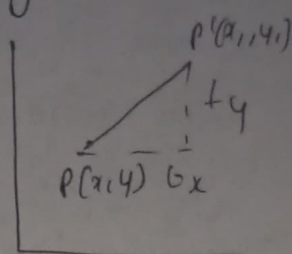 P'(x₁, y₁)
ty
P(x,y) tx